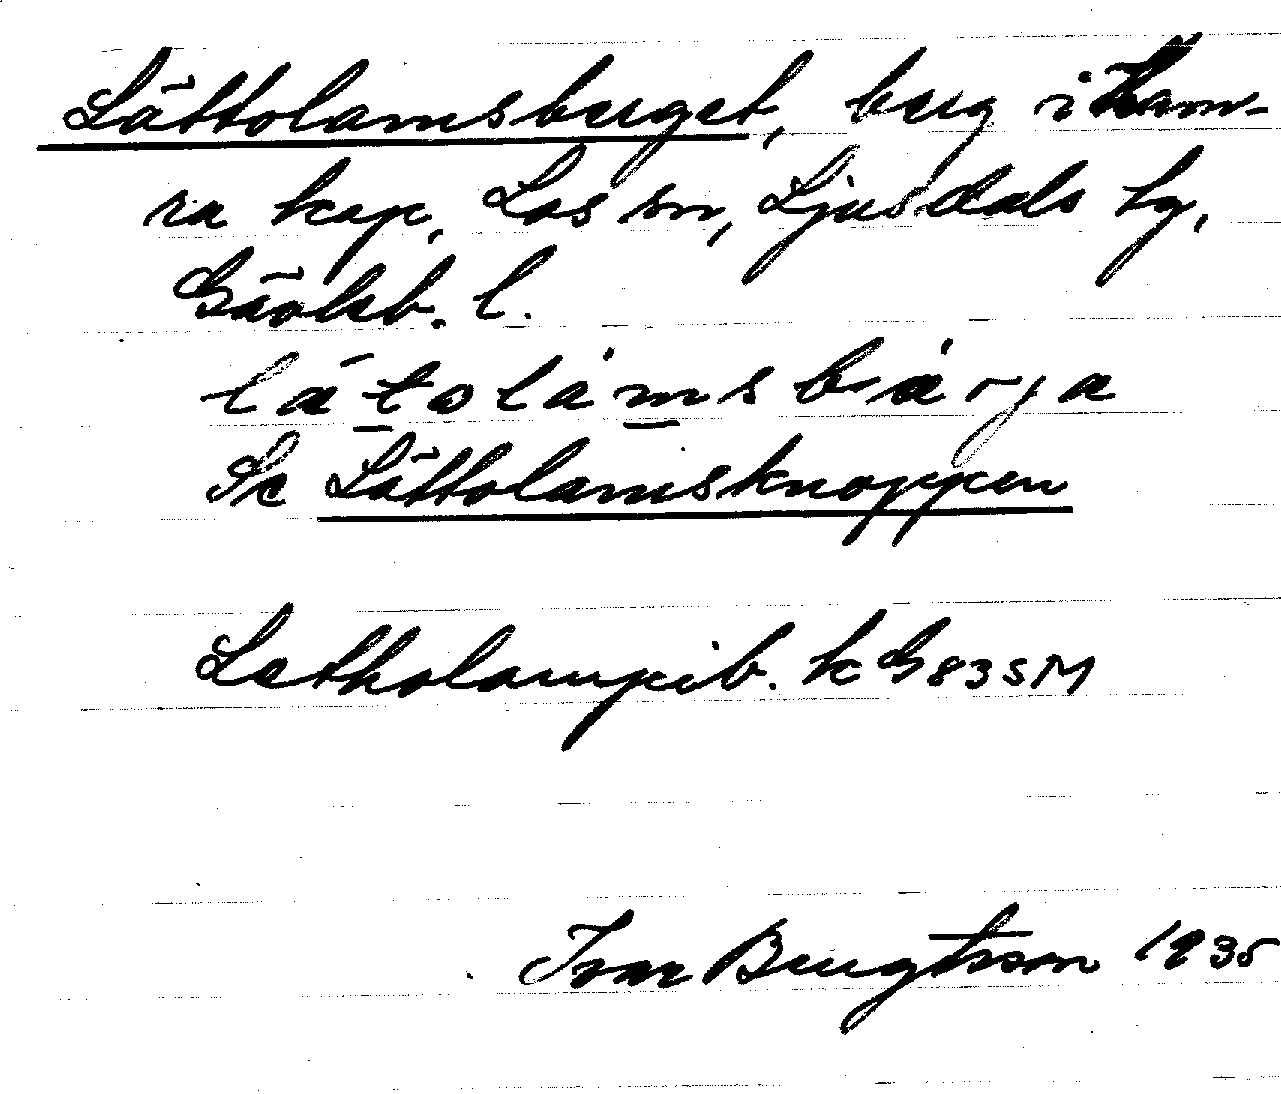 Lättolamsberget, berg i Ham-
ra kap, Los sn, Ljusdals tg,
Gävleb. l.
lätolàmsbàrja
Se Lättolamsknoppen
Letholampib. k G 83 SM
Ivar Bengtsson 1935